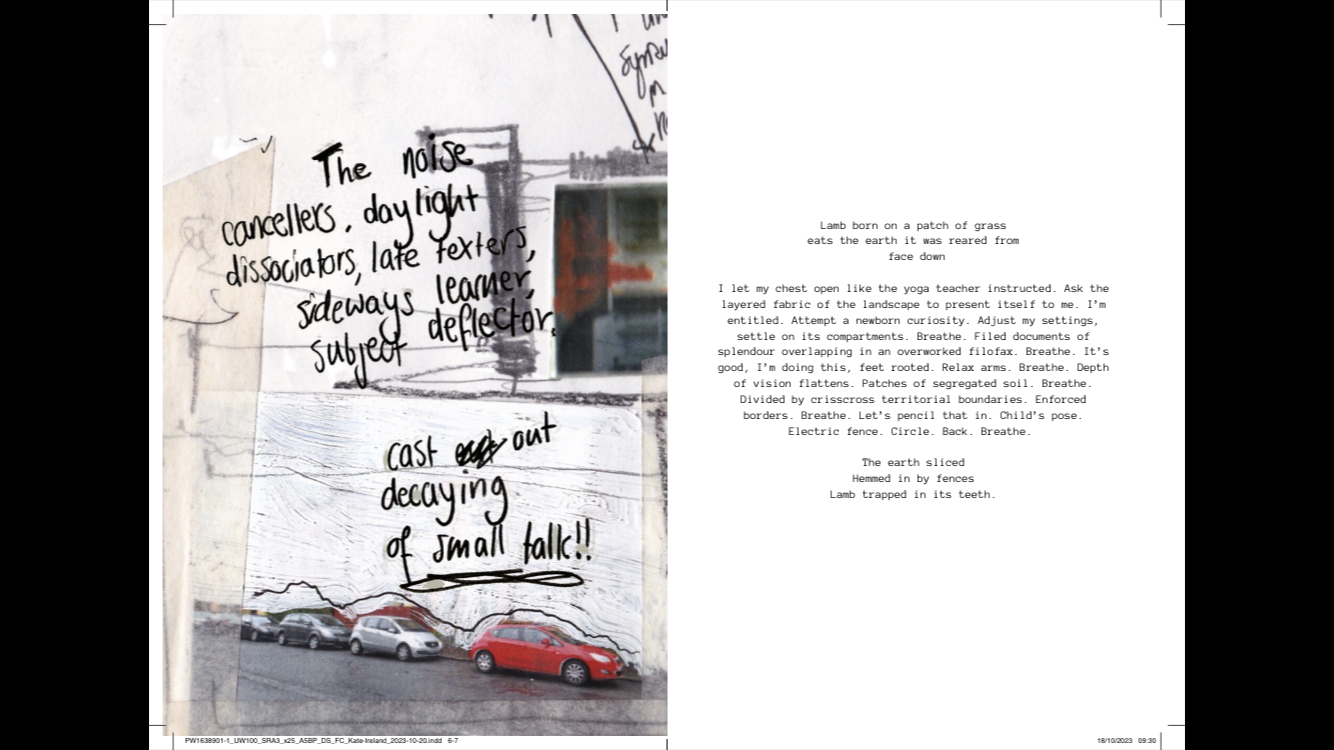 The noise
cancellers, daylight
dissociators, late texters,
sideways learner,
subject deflector.
cast out
decaying
of small talk!!
PW1638901-1_UW100_SRA3_x25_A5BP_DS_FC_Kate-Ireland_2023-10-20.indd 6-7
Lamb born on a patch of grass
eats the earth it was reared from
face down
I let my chest open like the yoga teacher instructed. Ask the
layered fabric of the landscape to present itself to me. I'm
entitled. Attempt a newborn curiosity. Adjust my settings,
settle on its compartments. Breathe. Filed documents of
splendour overlapping in an overworked filofax. Breathe. It's
good, I'm doing this, feet rooted. Relax arms. Breathe. Depth
of vision flattens. Patches of segregated soil. Breathe.
Divided by crisscross territorial boundaries. Enforced
borders. Breathe. Let's pencil that in. Child's pose.
Electric fence. Circle. Back. Breathe.
The earth sliced
Hemmed in by fences
Lamb trapped in its teeth.
18/10/2023 09:30